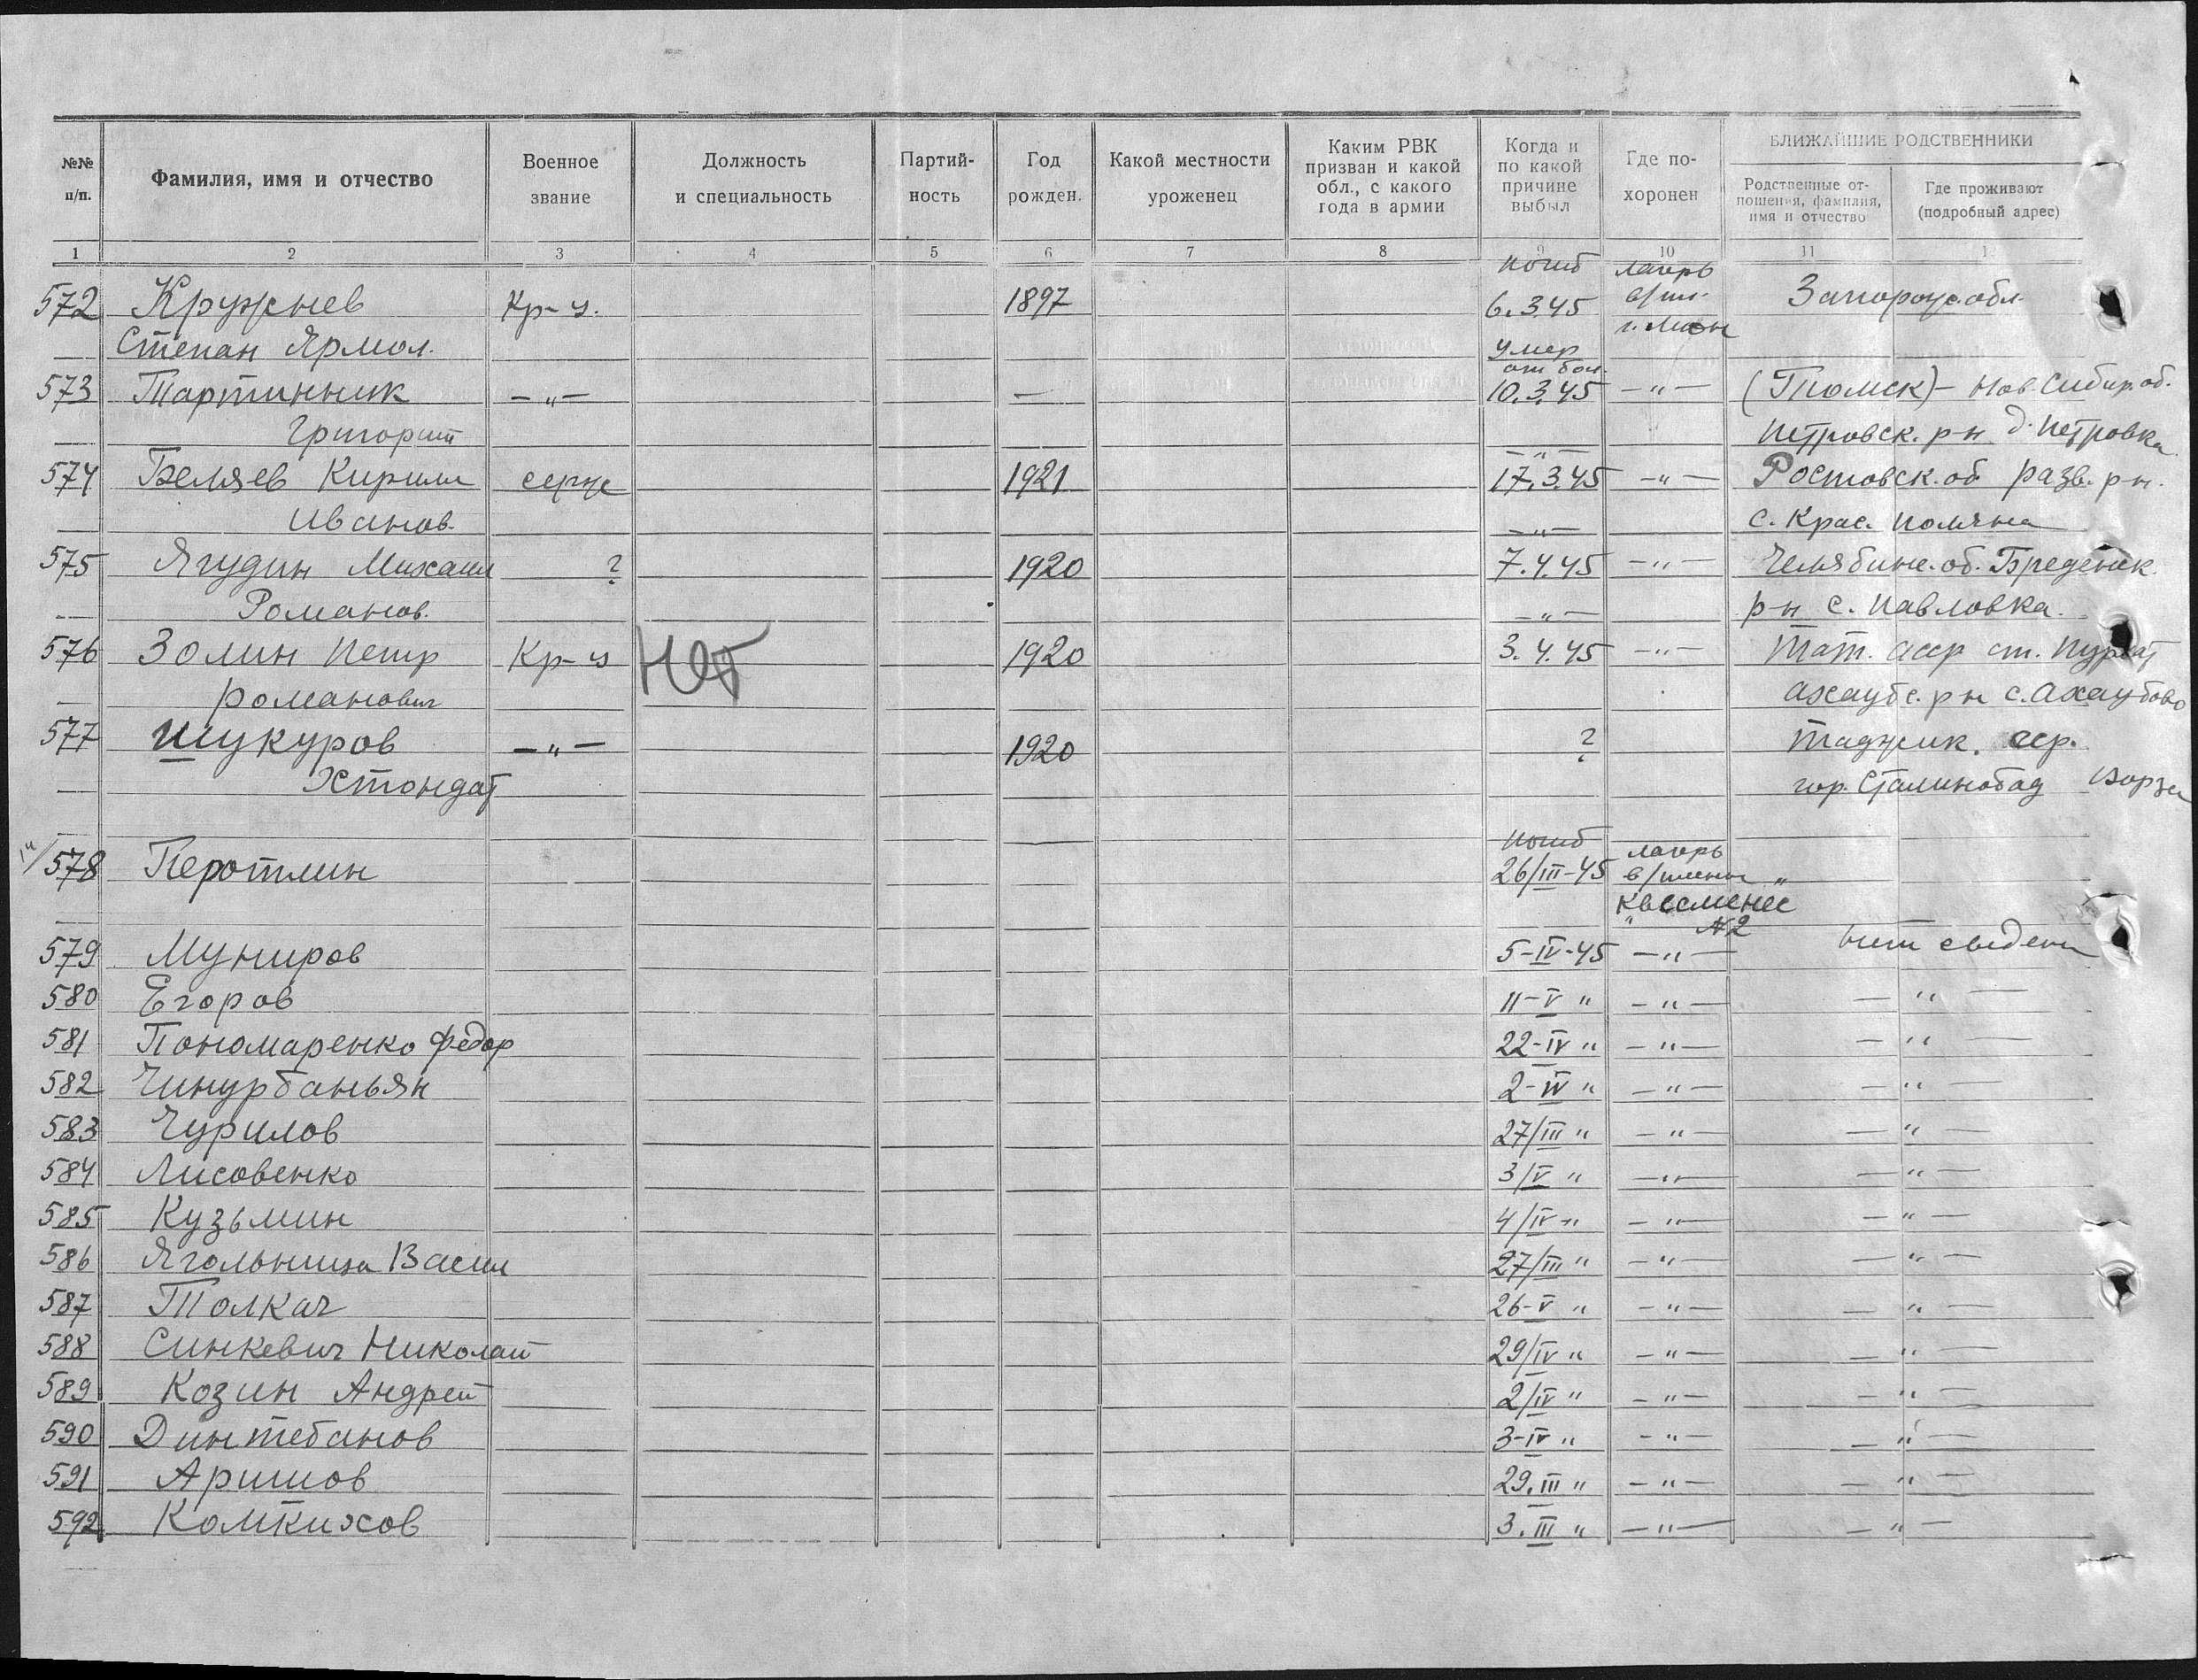 №№ п/п. Фамилия, имя и отчество Военное звание Должность и специальность Партий- ность Год рожден. Какой местности уроженец Каким РВК призван и какой обл., с какого года в армии Когда и по какой причине выбыл Где по- хоронен БЛИЖАЙШИЕ РОДСТВЕННИКИ
Родственные от- ношения, фамилия, имя и отчество Где проживают (подробный адрес)
1 2 3 4 5 6 7 8 9 10 11 1
погиб лагерь
572 Кружнев Кр-ц. 1897 6.3.45 в/пл. Запорож.обл.
Степан Ярмол. умер
от бол.
573 Тартинник —„— — 10.3.45 —„— (Томск)- Нов-Сибир.об.
Григорий Петровск. р-н д. Петровка
—„—
574 Беляев Кирилл серж 1921 17.3.45 —„— Ростовск.об разв. р-н.
Иванов. —„— с. Крас. Поляна
575 Ягудин Михаил ? 1920 7.4.45 —„— Челябинс.об. Бреденск.
Романов. —„— р-н с. Павловка.
576 Золин Петр Кр-ц Нет 1920 3.4.45 —„— Тат. асср ст.
Романович р-н
577 Шукуров —„— 1920 ? Таджик. сср.
Хстондат гор. Сталинобад
погиб лагерь
578 Перотлин 26/III-45 в/плены
№2
579 Муниров 5-IV-45 —„— нет сведени
580 Егоров 11-V „ —„— —„—
581 Пономаренко Федор 22-IV „ —„— —„—
582 Чинурбаньян 2-IV „ —„— —„
583 Чурилов 27/III „ —„— —„—
584 Лисовенко 3/V „ —„— —„—
585 Кузьмин 4/IV „ —„— —„—
586 Ягольница Васил 27/III „ —„— —„—
587 Толкач 26-V „ —„— —„—
588 Синкевич Николай 29/IV „ —„— —„—
589 Козин Андрей 2/IV „ —„— —„—
590 Динтебанов 3-IV „ —„— —„—
591 Аришов 29.III „ —„— —„—
592 Комкихов 3.III „ —„— —„—